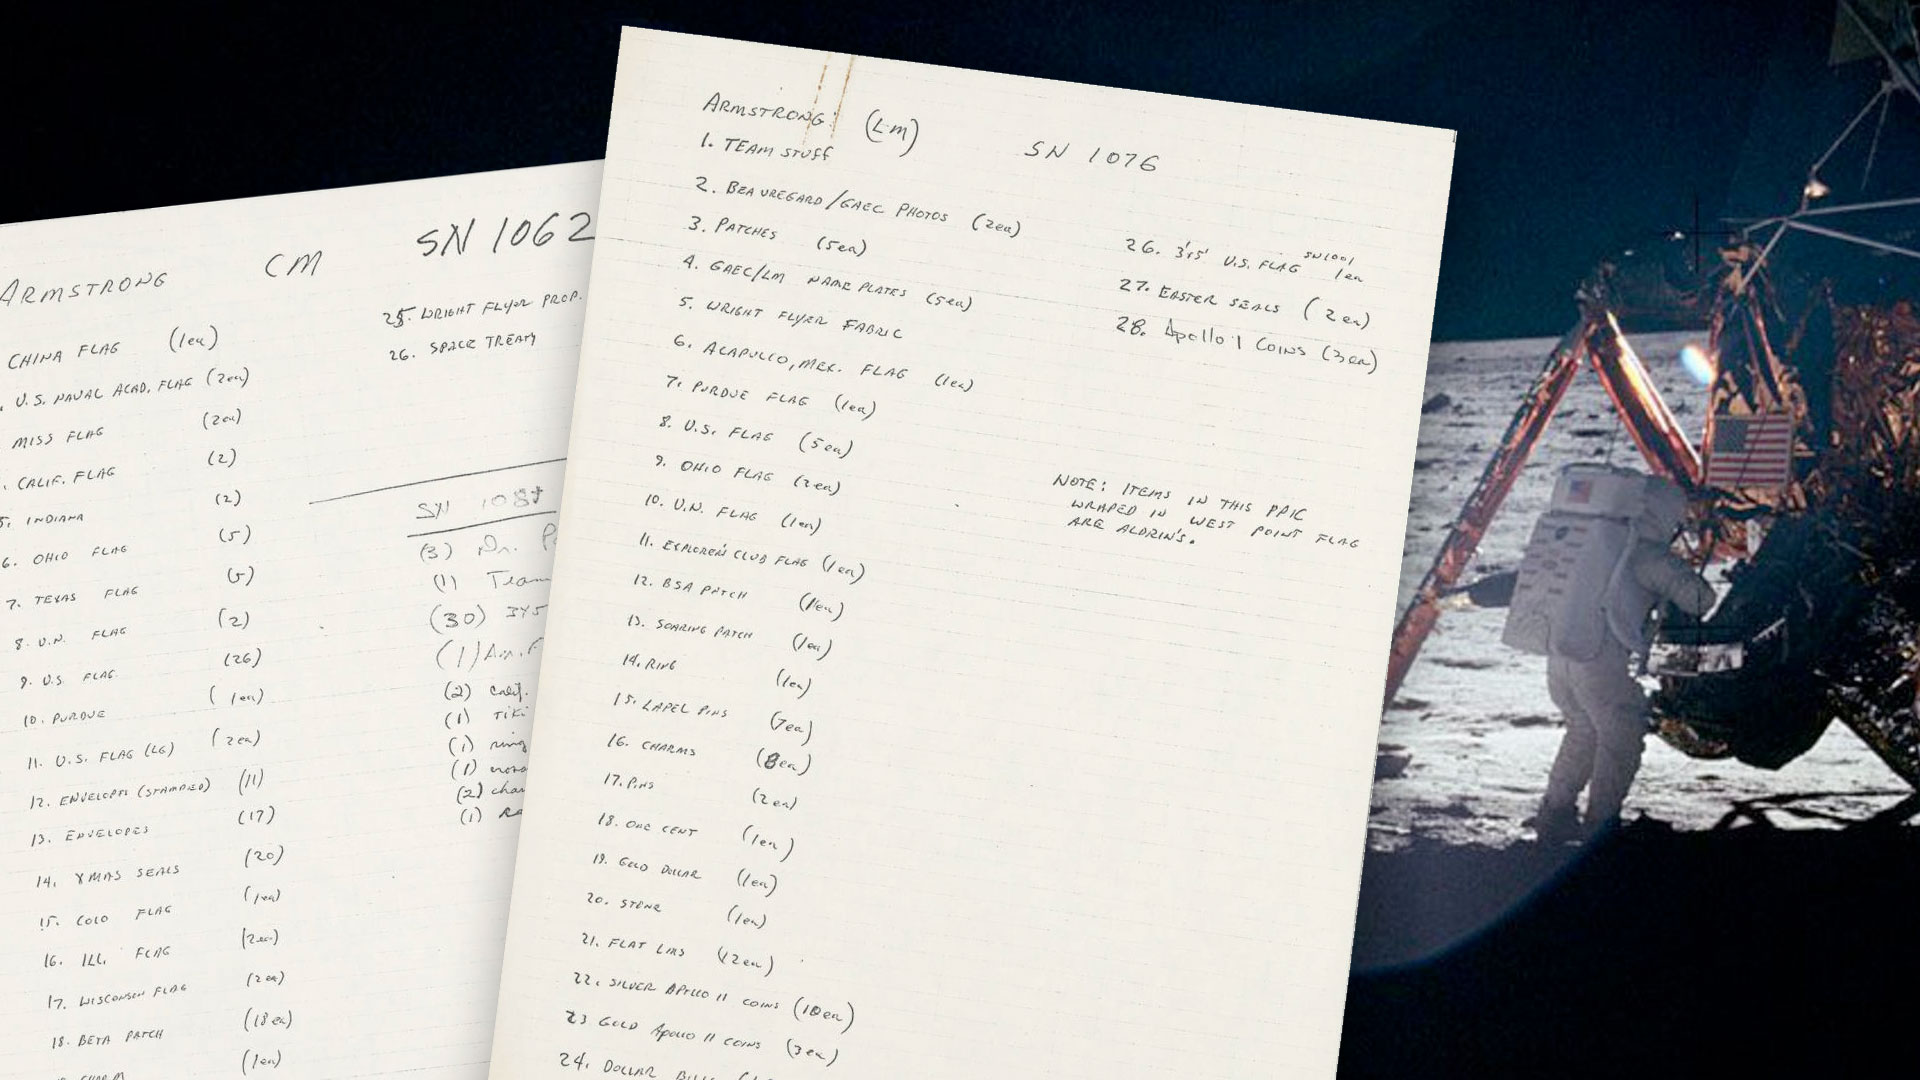 ARMSTRONG CM SN 1062
CHINA FLAG (1ea)
. U.S. NAVAL ACAD. FLAG (2ea)
MISS FLAG (2ea)
. CALIF. FLAG (2)
5. INDIANA (2)
6. OHIO FLAG (5)
7. TEXAS FLAG (5)
8. U.N. FLAG (2)
9. U.S. FLAG (26)
10. PURDUE (1ea)
11. U.S. FLAG (LG) (2ea)
12. ENVELOPES (STAMPED) (11)
13. ENVELOPES (17)
14. XMAS SEALS (20)
15. COLO FLAG (1ea)
16. ILL. FLAG (2ea)
17. WISCONSIN FLAG (2ea)
18. BETA PATCH (18ea)
CHARM (1ea)
25. WRIGHT FLYER PROP.
26. SPACE TREATY
SN
(3) Dr.
(1) Team
(30) 3X5
(1) Am.
(2) Calif.
(1) Tiki
(1) ring
(1)
(2) cha
(1)
ARMSTRONG: (LM) SN 1076
1. TEAM STUFF
2. BEAUREGARD/GAEC PHOTOS (2ea)
3. PATCHES (5ea)
4. GAEC/LM NAME PLATES (5ea)
5. WRIGHT FLYER FABRIC
6. ACAPULCO, MEX. FLAG (1ea)
7. PURDUE FLAG (1ea)
8. U.S. FLAG (5ea)
9. OHIO FLAG (2ea)
10. U.N. FLAG (1ea)
11. EXPLORERS CLUB FLAG (1ea)
12. BSA PATCH (1ea)
13. SOARING PATCH (1ea)
14. RING (1ea)
15. LAPEL PINS (7ea)
16. CHARMS (8ea)
17. PINS (2ea)
18. ONE CENT (1ea)
19. GOLD DOLLAR (1ea)
20. STONE (1ea)
21. FLAT LMS (12ea)
22. SILVER APOLLO 11 COINS (10ea)
23 GOLD Apollo 11 COINS (3ea)
24. DOLLAR
26. 3'x5' U.S. FLAG SN1001 1ea
27. EASTER SEALS (2ea)
28. Apollo 1 COINS (3ea)
NOTE: ITEMS IN THIS PPK
WRAPED IN WEST POINT FLAG
ARE ALDRIN'S.